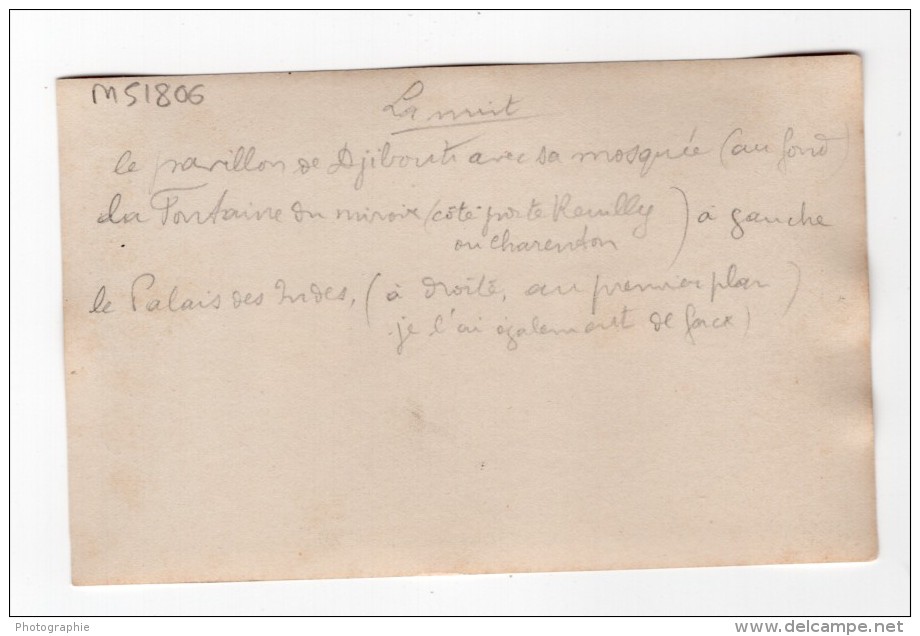 MS1806
La nuit
le pavillon de Djibouti avec sa mosquée (au fond)
La Fontaine du miroir (côté porte Reuilly) à gauche
ou Charenton
le Palais des Indes, (à droite, au premier plan)
je l'ai également de face)
Photographie
www.delcampe.net